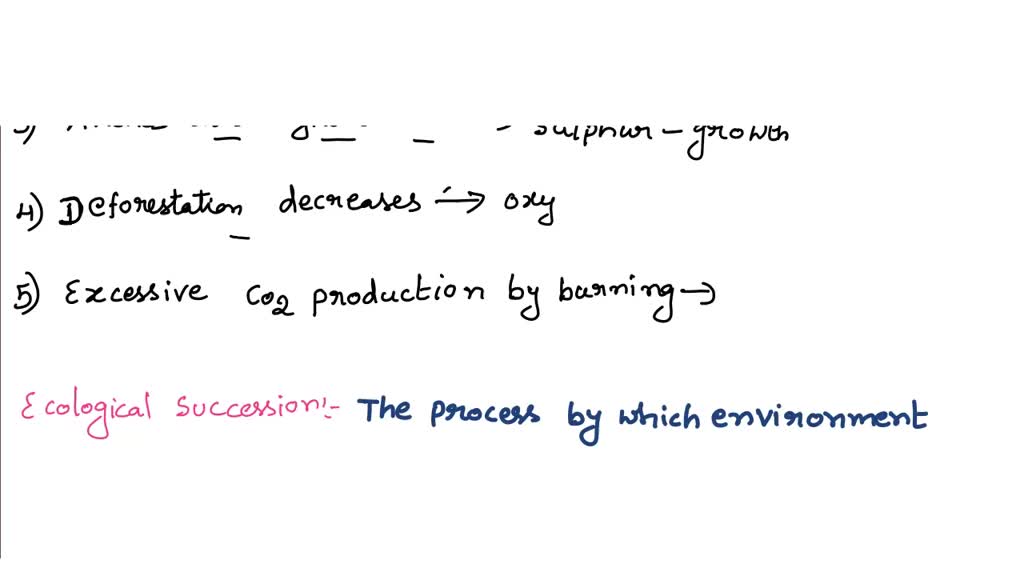 3) → sulphur - growth
4) Deforestation decreases → oxy
5) Excessive CO2 production by burning →
Ecological Succession:- The process by which environment